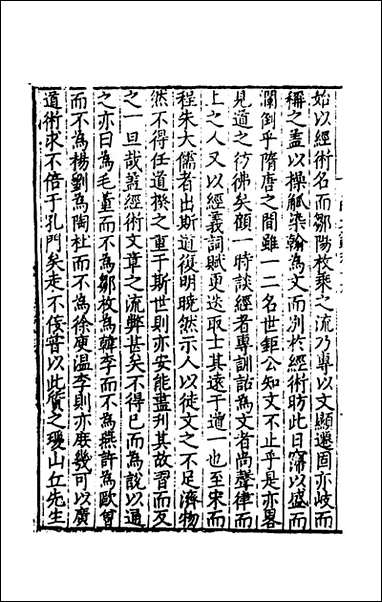 始以經術名而鄒陽枚乘之流乃專以文顯遷固亦岐而
稱之蓋以操觚染翰為文而别於經術昉此日窮以盛而
瀾倒乎隋唐之間雖一二名世鉅公知文不止乎是亦畧
見道之彷彿矣顧一時談經者專訓詁為文者尚聲律而
上之人又以經義詞賦更迭取士其遠于道一也至宋而
程朱大儒者出斯道復明曉然示人以徒文之不足濟物
然不得任道揆之重于斯世則亦安能盡刋其故習而反
之一旦哉蓋經術文章之流弊甚矣不得已而為說以通
之亦曰為毛董而不為鄒枚為韓李而不為燕許為歐曾
而不為楊劉為陶杜而不為徐庾温李則亦庶幾可以廣
道術求不倍于孔門矣走不佞嘗以此質之瓊山丘先生